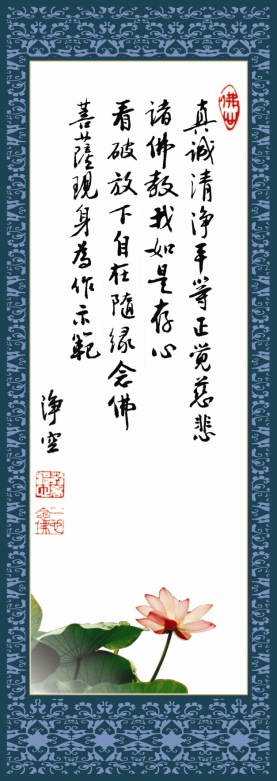 真诚清净平等正觉慈悲
诸佛教我如是存心
看破放下自在随缘念佛
菩萨现身为作示范
净空